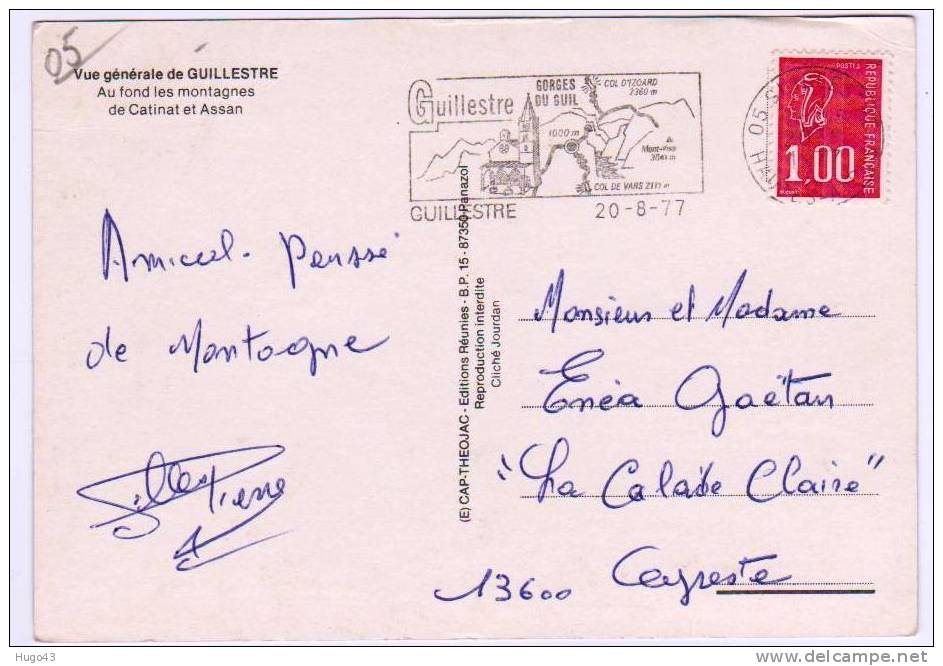 05
Vue générale de GUILLESTRE
Au fond les montagnes
de Catinat et Assan
Guillestre
GORGES
DU GUIL
COL D'IZOARD
2360 m
1000 m
Mont-Viso
COL DE VARS 2111 m
GUILLESTRE 20-8-77
05
POSTES
REPUBLIQUE FRANÇAISE
1,00
Amical Penssé
de Montagne
(E) CAP-THEOJAC - Editions Réunies - B.P. 15 - 87350 Panazol
Reproduction interdite
Cliché Jourdan
Monsieur et Madame
Enéa Gaëtan
"La Calade Claire"
13600 Ceyreste
Hugo43
delcampe.net